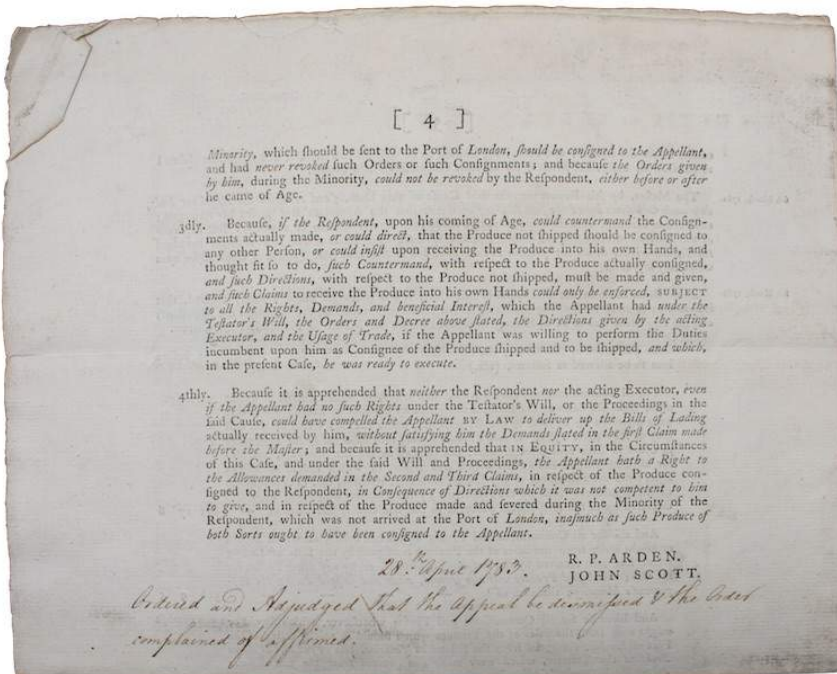 [ 4 ]
Minority, which ſhould be ſent to the Port of London, ſhould be conſigned to the Appellant,
and had never revoked ſuch Orders or ſuch Conſignments; and becauſe the Orders given
by him, during the Minority, could not be revoked by the Reſpondent, either before or after
he came of Age.
3dly. Becauſe, if the Reſpondent, upon his coming of Age, could countermand the Conſign-
ments actually made, or could direct, that the Produce not ſhipped ſhould be conſigned to
any other Perſon, or could inſiſt upon receiving the Produce into his own Hands, and
thought fit ſo to do, ſuch Countermand, with reſpect to the Produce actually conſigned,
and ſuch Directions, with reſpect to the Produce not ſhipped, muſt be made and given,
and ſuch Claims to receive the Produce into his own Hands could only be enforced, SUBJECT
to all the Rights, Demands, and beneficial Intereſt, which the Appellant had under the
Teſtator's Will, the Orders and Decree above ſtated, the Directions given by the acting
Executor, and the Uſage of Trade, if the Appellant was willing to perform the Duties
incumbent upon him as Conſignee of the Produce ſhipped and to be ſhipped, and which,
in the preſent Caſe, he was ready to execute.
4thly. Becauſe it is apprehended that neither the Reſpondent nor the acting Executor, even
if the Appellant had no ſuch Rights under the Teſtator's Will, or the Proceedings in the
ſaid Cauſe, could have compelled the Appellant BY LAW to deliver up the Bills of Lading
actually received by him, without ſatisfying him the Demands ſtated in the firſt Claim made
before the Maſter; and becauſe it is apprehended that IN EQUITY, in the Circumſtances
of this Caſe, and under the ſaid Will and Proceedings, the Appellant hath a Right to
the Allowances demanded in the Second and Third Claims, in reſpect of the Produce con-
ſigned to the Reſpondent, in Conſequence of Directions which it was not competent to him
to give, and in reſpect of the Produce made and ſevered during the Minority of the
Reſpondent, which was not arrived at the Port of London, inaſmuch as ſuch Produce of
both Sorts ought to have been conſigned to the Appellant.
R. P. ARDEN.
28.th April 1783.
JOHN SCOTT.
Ordered and Adjudged That the Appeal be dismiſsed & the Order
complained of affirmed.